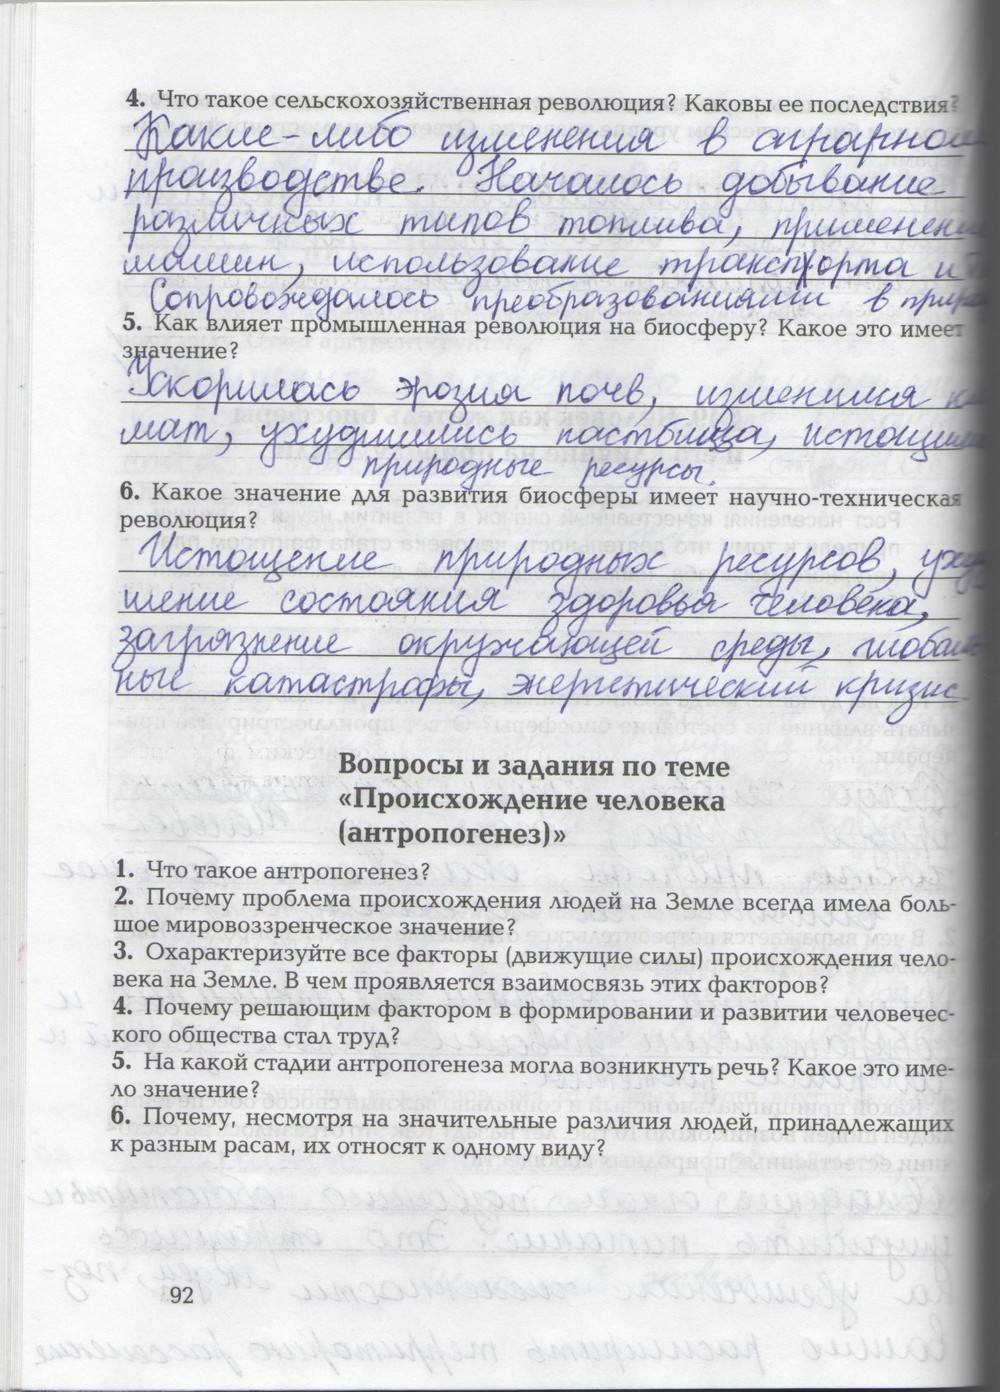 4. Что такое сельскохозяйственная революция? Каковы ее последствия?
Какие-либо изменения в аграрном
производстве. Началось добывание
различных типов топлива, применени
машин, использование транспорта и
Сопровождалось преобразованиями в приро
5. Как влияет промышленная революция на биосферу? Какое это имеет
значение?
Ускорилась эрозия почв, изменился кл
мат, ухудшились пастбища, истощили
природные ресурсы.
6. Какое значение для развития биосферы имеет научно-техническая
революция?
Истощение природных ресурсов, уху
шение состояния здоровья человека,
загрязнение окружающей среды, глобаль
ные катастрофы, энергетический кризис
Вопросы и задания по теме
«Происхождение человека
(антропогенез)»
1. Что такое антропогенез?
2. Почему проблема происхождения людей на Земле всегда имела боль-
шое мировоззренческое значение?
3. Охарактеризуйте все факторы (движущие силы) происхождения чело-
века на Земле. В чем проявляется взаимосвязь этих факторов?
4. Почему решающим фактором в формировании и развитии человечес-
кого общества стал труд?
5. На какой стадии антропогенеза могла возникнуть речь? Какое это име-
ло значение?
6. Почему, несмотря на значительные различия людей, принадлежащих
к разным расам, их относят к одному виду?
92